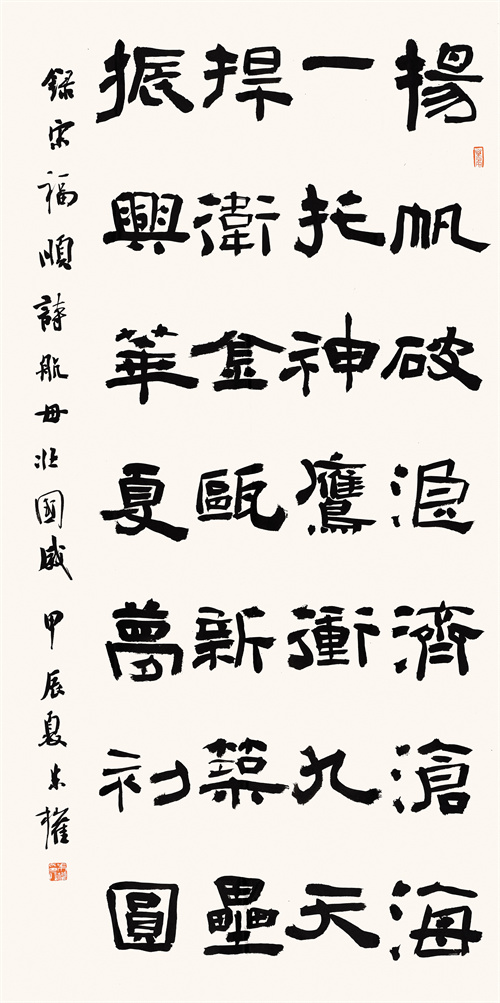 揚帆破浪濟滄海
一托神鷹衝九天
捍衛金甌新築壘
振興華夏夢初圓
錄宋福順詩航母壯國威 甲辰夏 朱權